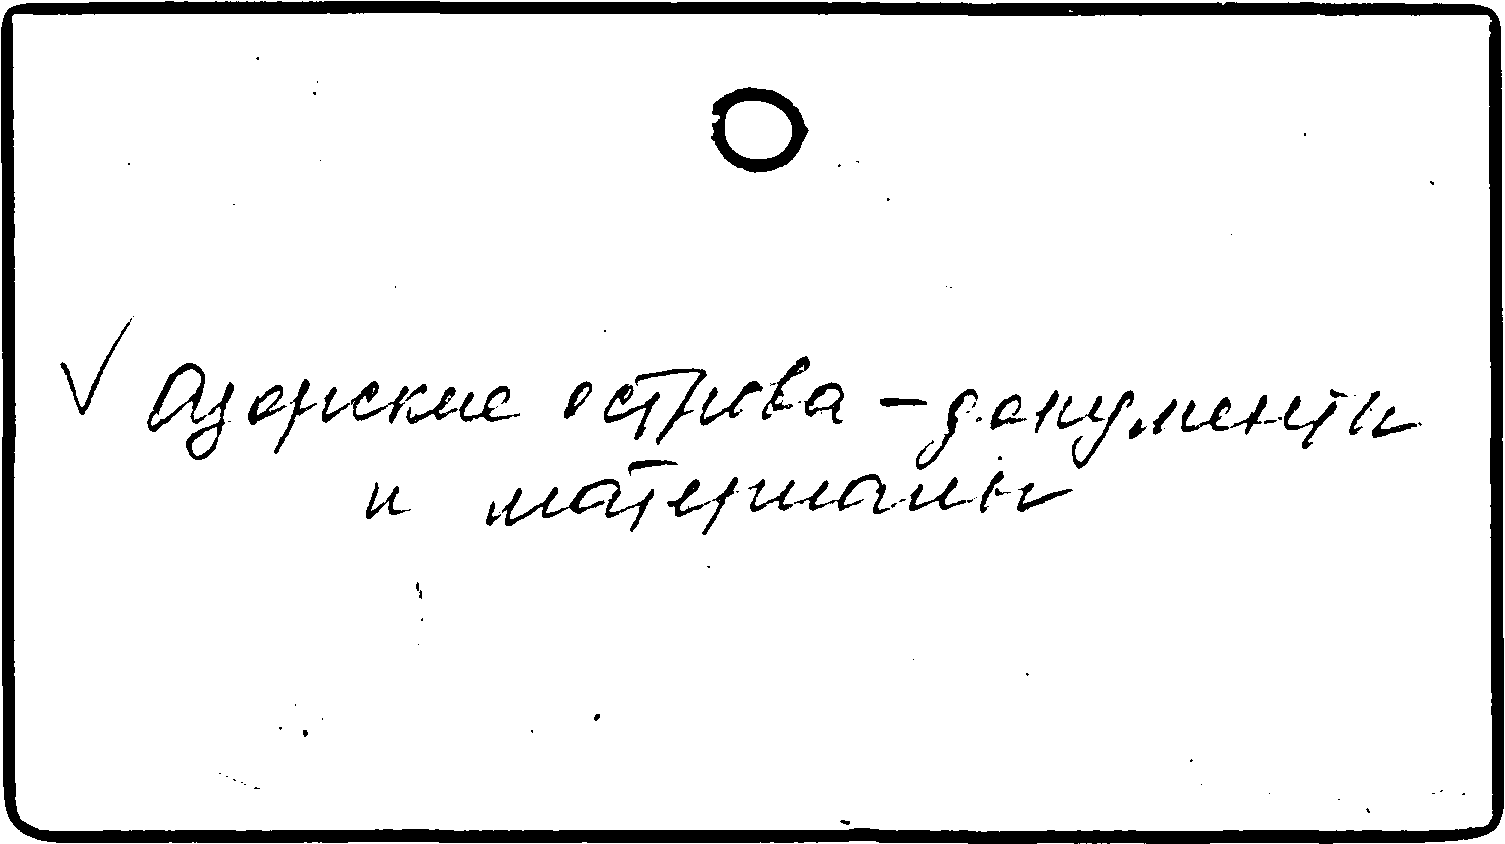 ✓ Азорские острова - документы
и материалы